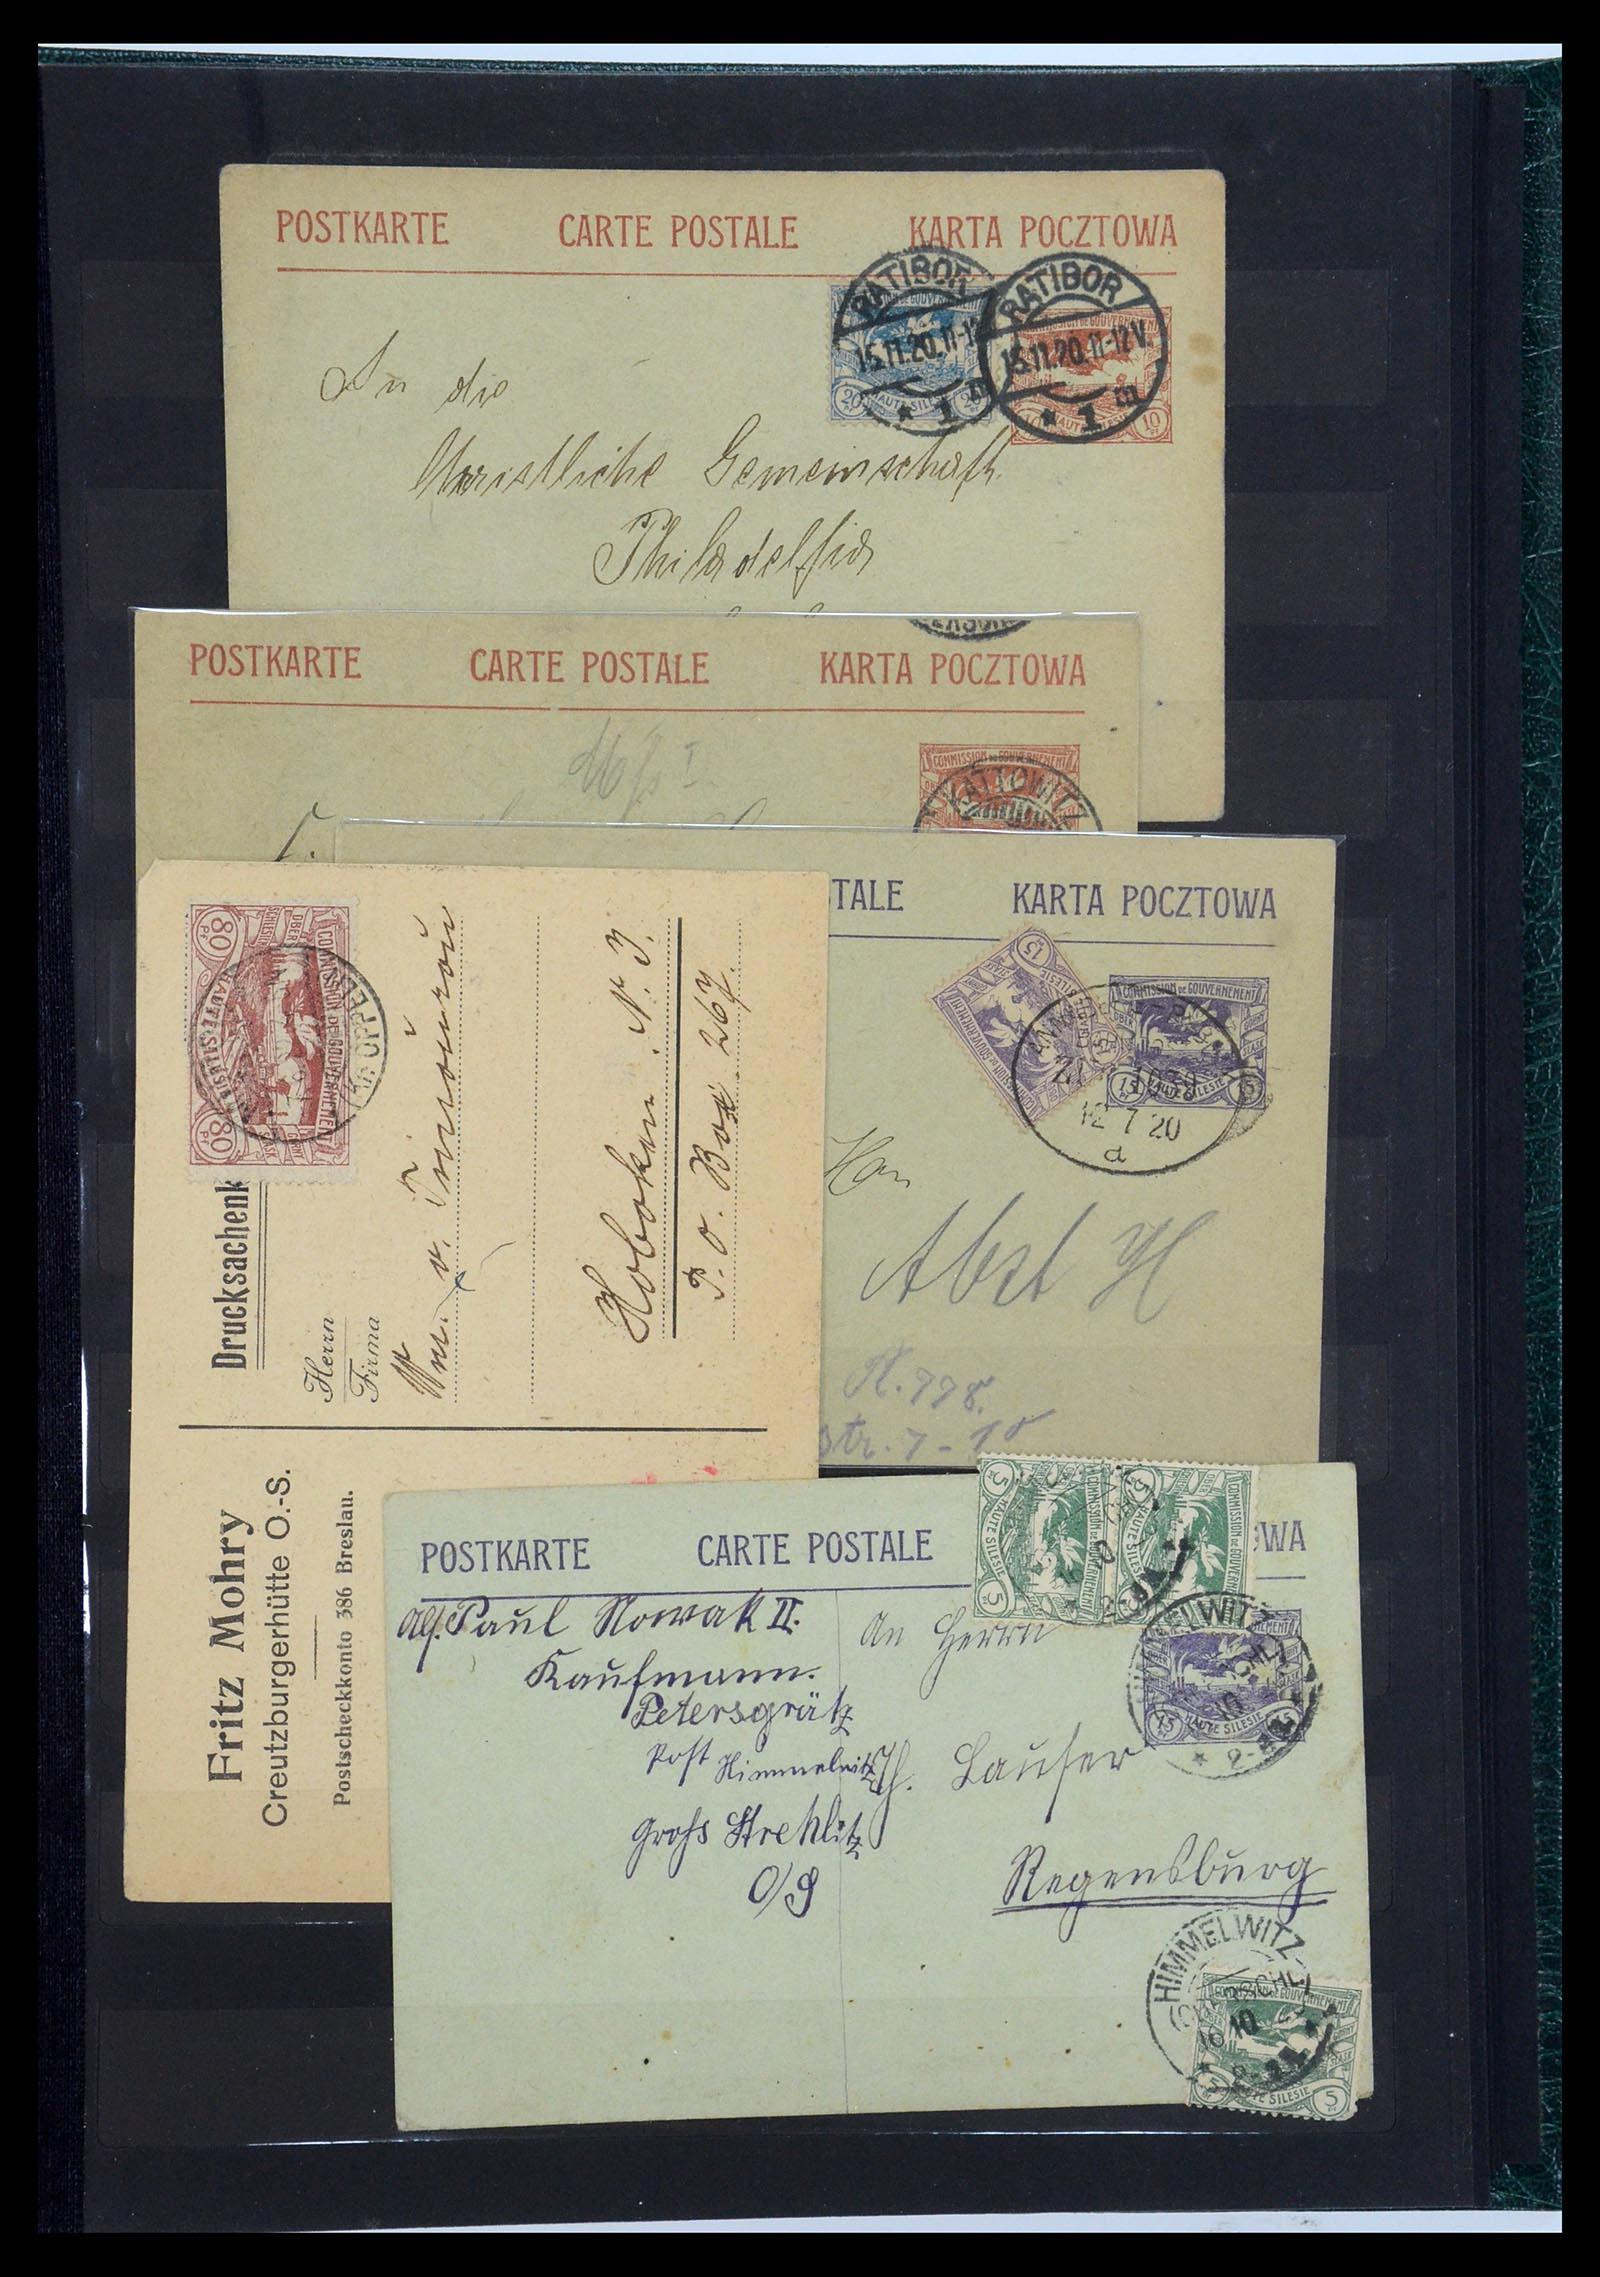 POSTKARTE CARTE POSTALE KARTA POCZTOWA
RATIBOR
15.11.20.11-12
* 1
RATIBOR
15.11.20.11-12V.
* 1 m
20 HAUTE SILESIE
COMMISSION DE GOUVERNEMENT
HAUTE SILESIE 10
An die
Christliche Gemeinschaft
Philadelfia
POSTKARTE CARTE POSTALE KARTA POCZTOWA
COMMISSION DE GOUVERNEMENT
KATTOWITZ
TALE KARTA POCZTOWA
15
COMMISSION DE GOUVERNEMENT
15 HAUTE SILESIE 15
12 7 20
d
Abst H
str. 7-
80 OBER SCHLESIEN
COMMISSION DE GOUVERNEMENT
HAUTE SILESIE
80
OPPELN
Drucksachenk
Herrn
Firma
Wm. v.
Hoboken N. J.
P. O. Box 267.
Fritz Mohry
Creutzburgerhütte O.-S.
Postscheckkonto 386 Breslau.
POSTKARTE CARTE POSTALE WA
5 HAUTE SILESIE 5
COMMISSION DE GOUVERNEMENT
5 HAUTE SILESIE
COMMISSION DE GOUVERNEMENT
Paul Nowak II.
Kaufmann.
Petersgrätz
Post Himmelwitz
Groß Strehlitz
O/S
An Herrn
Th. Laußer
Regensburg
15 HAUTE SILESIE 15
HIMMELWITZ
10
COMMISSION DE GOUVERNEMENT
HAUTE SILESIE 5